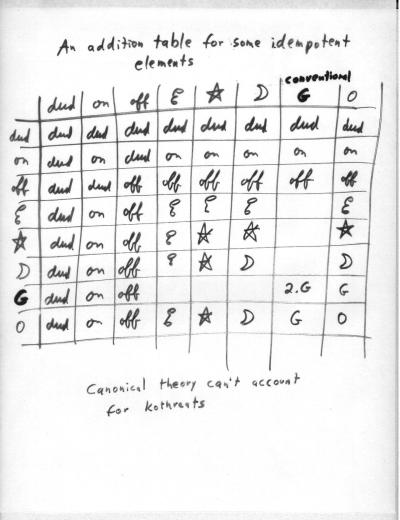 An addition table for some idempotent
elements
conventional
dud on off ξ ☆ D G 0
dud dud dud dud dud dud dud dud dud
on dud on dud on on on on on
off dud dud off off off off off off
ξ dud on off ξ ξ ξ ξ
☆ dud on off ξ ☆ ☆ ☆
D dud on off ξ ☆ D D
G dud on off 2.G G
0 dud on off ξ ☆ D G 0
Canonical theory can't account
for Kothreats